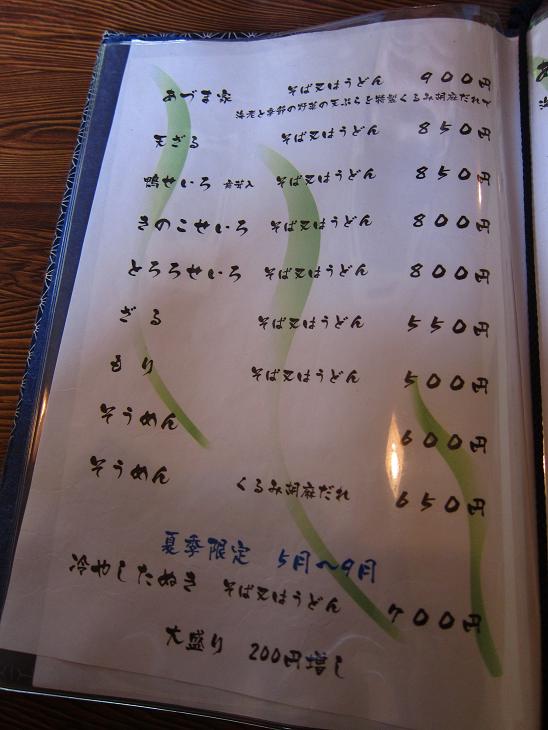 あづま家 そば又はうどん 900円
海老と季節の野菜の天ぷらを特製くるみ胡麻だれで
天ざる そば又はうどん 850円
鴨せいろ そば又はうどん 850円
きのこせいろ そば又はうどん 800円
とろろせいろ そば又はうどん 800円
ざる そば又はうどん 550円
もり そば又はうどん 500円
そうめん 600円
そうめん くるみ胡麻だれ 650円
夏季限定 5月～9月
冷やしたぬき そば又はうどん 700円
大盛り 200円増し